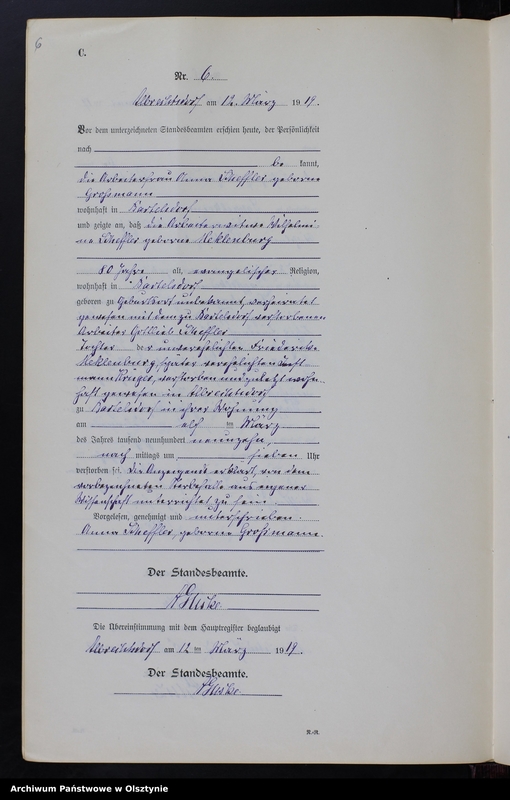 6
C.
Nr. 6.
Albrechtsdorf am 12. März 1919.
Vor dem unterzeichneten Standesbeamten erschien heute, der Persönlichkeit
nach
be kannt,
die Arbeiterfrau Anna Scheffler geborne
Großmann
wohnhaft in Bartelsdorf
und zeigte an, daß die Arbeiterwitwe Wilhelmi-
ne Scheffler geborne Meklenburg
80 Jahre alt, evangelischer Religion,
wohnhaft in Bartelsdorf
geboren zu Geburtsort unbekannt, verheiratet
gewesen mit dem zu Bartelsdorf verstorbenen
Arbeiter Gottlieb Scheffler
Tochter der unverehelichten Friederike
Meklenburg, später verehelichten
mann Krüger, verstorben und zuletzt wohn-
haft gewesen in Albrechtsdorf
zu Bartelsdorf in ihrer Wohnung
am elf ten März
des Jahres tausend neunhundert neunzehn,
nach mittags um sieben Uhr
verstorben sei. Die Anzeigende erklärt, von dem
vorbezeichneten Sterbefalle aus eigener
Wissenschaft unterrichtet zu sein
Vorgelesen, genehmigt und unterschrieben.
Anna Scheffler, geborne Großmann.
Der Standesbeamte.
Die Übereinstimmung mit dem Hauptregister beglaubigt
Albrechtsdorf am 12 ten März 1919.
Der Standesbeamte.
Archiwum Państwowe w Olsztynie